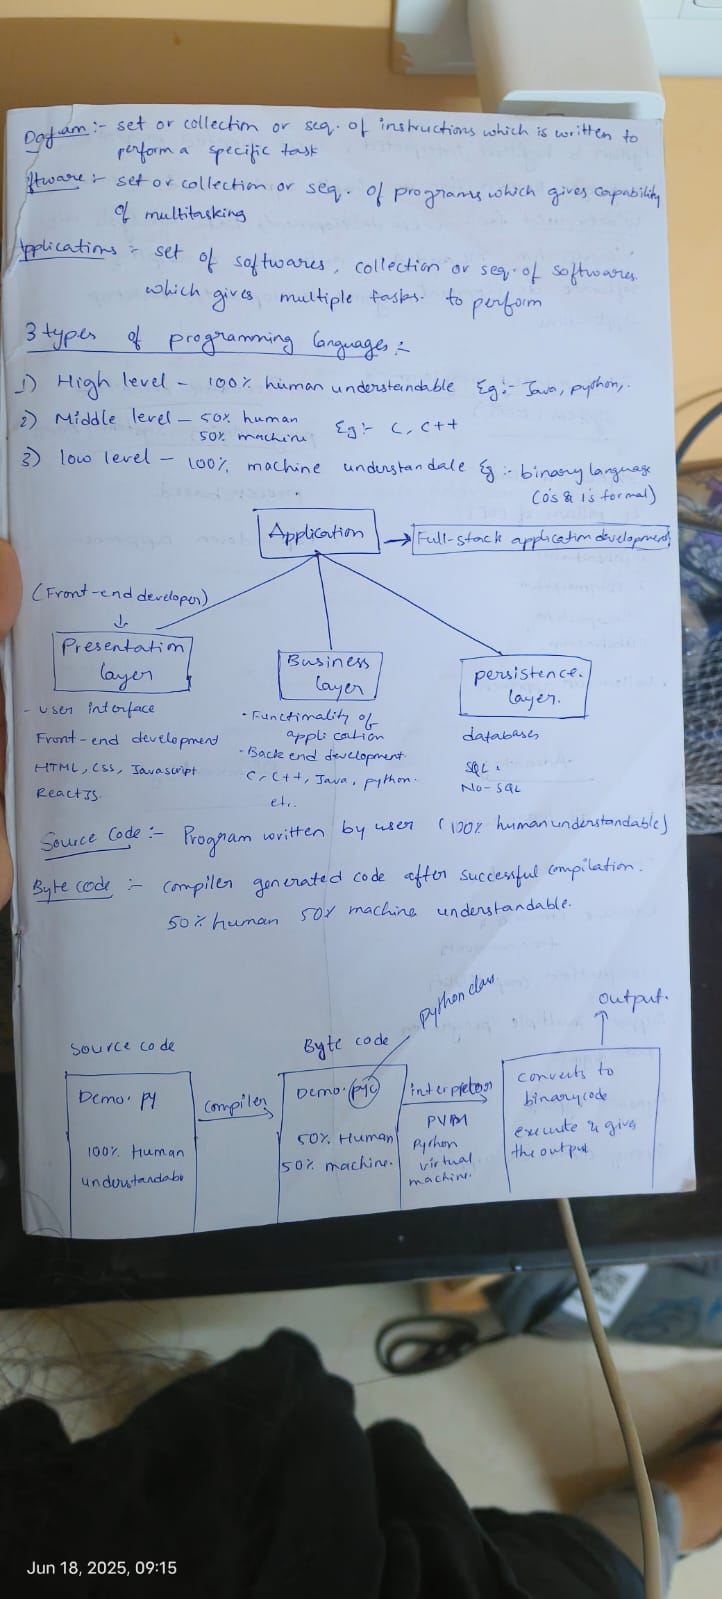 Program :- set or collection or seq. of instructions which is written to
perform a specific task
ftware :- set or collection or seq. of programs which gives capability
of multitasking
Applications :- set of softwares, collection or seq. of softwares
which gives multiple tasks. to perform
3 types of programming languages :-
1) High level - 100% human understandable Eg:- Java, python,.
2) Middle level - 50% human Eg:- C, C++
50% machine
3) low level - 100% machine understandale Eg :- binary language
(0's & 1's format)
Application → Full-stack application development
(Front-end developer)
Presentation layer
Business layer
persistence. layer.
- user interface
Front-end development
HTML, CSS, Javascript
ReactJS.
• Functionality of
application
• Back end development.
C, C++, Java, python.
etc..
databases
SQL.
No-SQL
Source Code :- Program written by user (100% human understandable)
Byte code :- compiler generated code after successful compilation.
50% human 50% machine understandable.
python class
output.
Source code
Demo. py
100% Human
understandabe
compiler
Byte code
Demo. pyc
50% Human
50% machine.
interpreter
PVM
Python
virtual
machine.
converts to
binary code
execute & gives
the output
Jun 18, 2025, 09:15